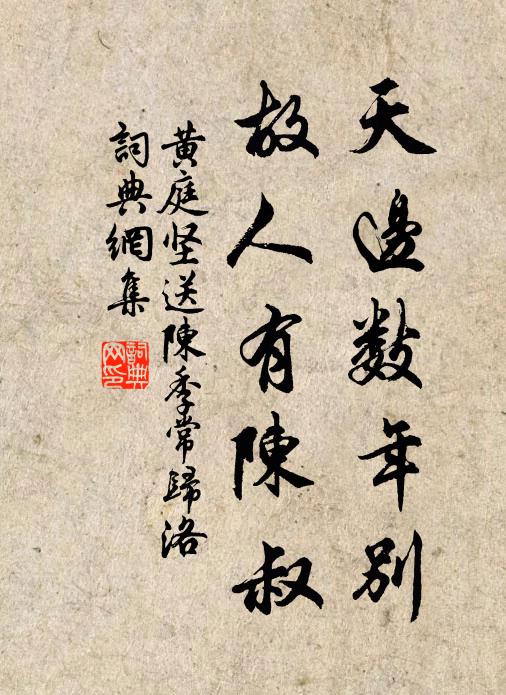 天邊数年别
故人有陳叔
黄庭坚送陳季常歸洛
詞典網集
詞典网印